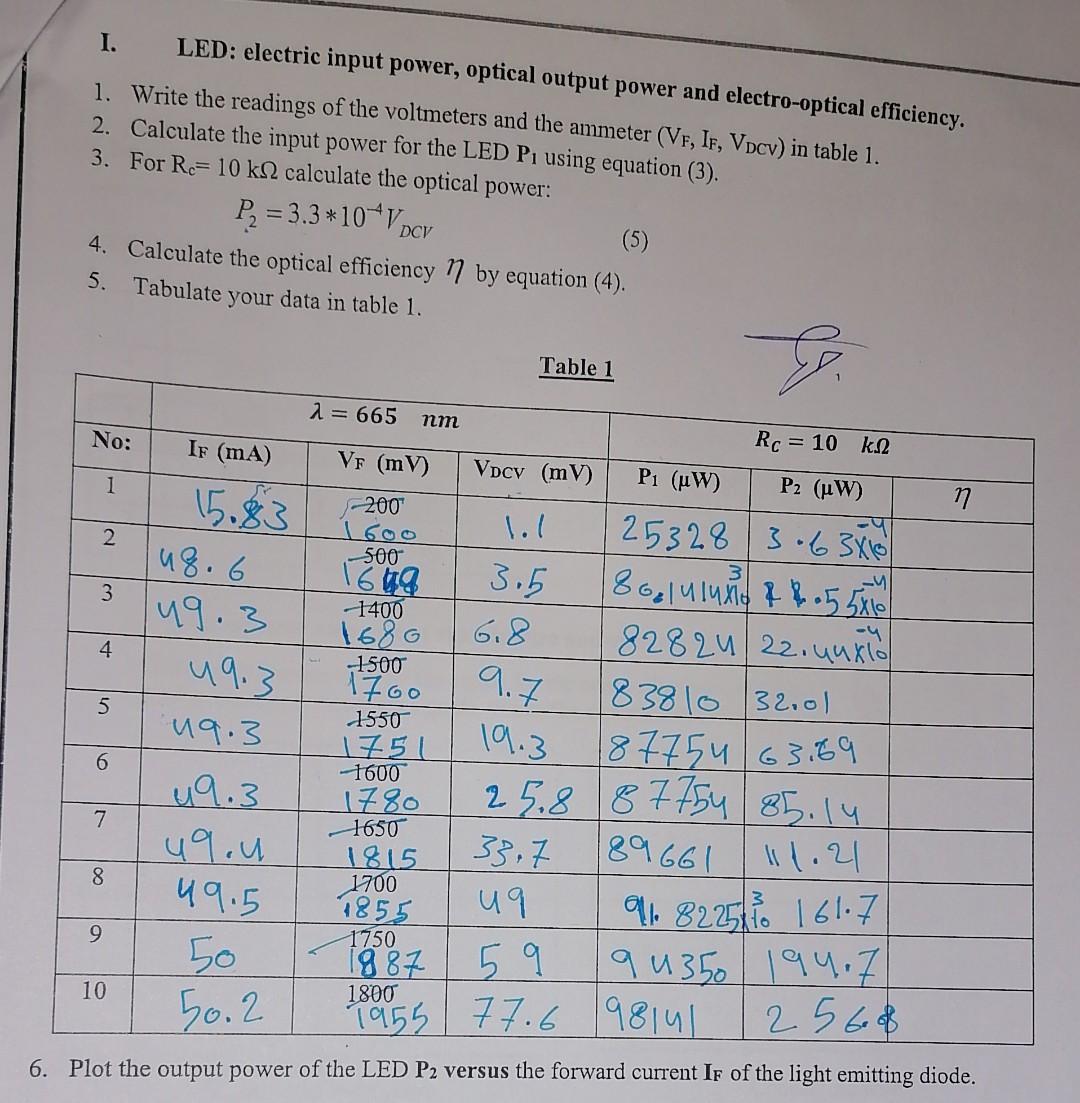 I. LED: electric input power, optical output power and electro-optical efficiency.
1. Write the readings of the voltmeters and the ammeter (VF, IF, VDCV) in table 1.
2. Calculate the input power for the LED P1 using equation (3).
3. For Rc= 10 kΩ calculate the optical power:
P2 = 3.3*10⁻⁴ VDCV (5)
4. Calculate the optical efficiency η by equation (4).
5. Tabulate your data in table 1.
Table 1
λ = 665 nm RC = 10 kΩ
No: IF (mA) VF (mV) VDCV (mV) P1 (μW) P2 (μW) η
1 15.83 200 1600 1.1 25328 3.63x10⁻⁴
2 48.6 500 3.5 80.1414x10³
3 49.3 1400 1680 6.8 82824 22.44x10⁻⁴
4 49.3 1500 1700 9.7 83810 32.01
5 49.3 1550 1751 19.3 87754 63.69
6 49.3 1600 1780 25.8 87754 85.14
7 49.4 1650 1815 33.7 89661 111.21
8 49.5 1700 1855 49 91.8225x10³ 161.7
9 50 1750 1887 59 94350 194.7
10 50.2 1800 1955 77.6 98141 256.8
6. Plot the output power of the LED P2 versus the forward current IF of the light emitting diode.